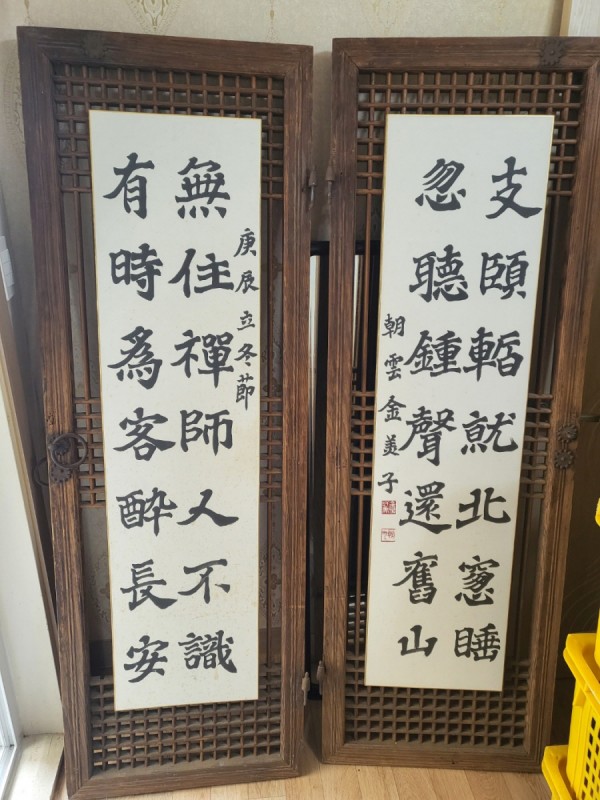 庚辰立冬節
無住禪師人不識
有時爲客酔長安
支頤暫就北窓睡
忽聽鍾聲還舊山
朝雲金美子